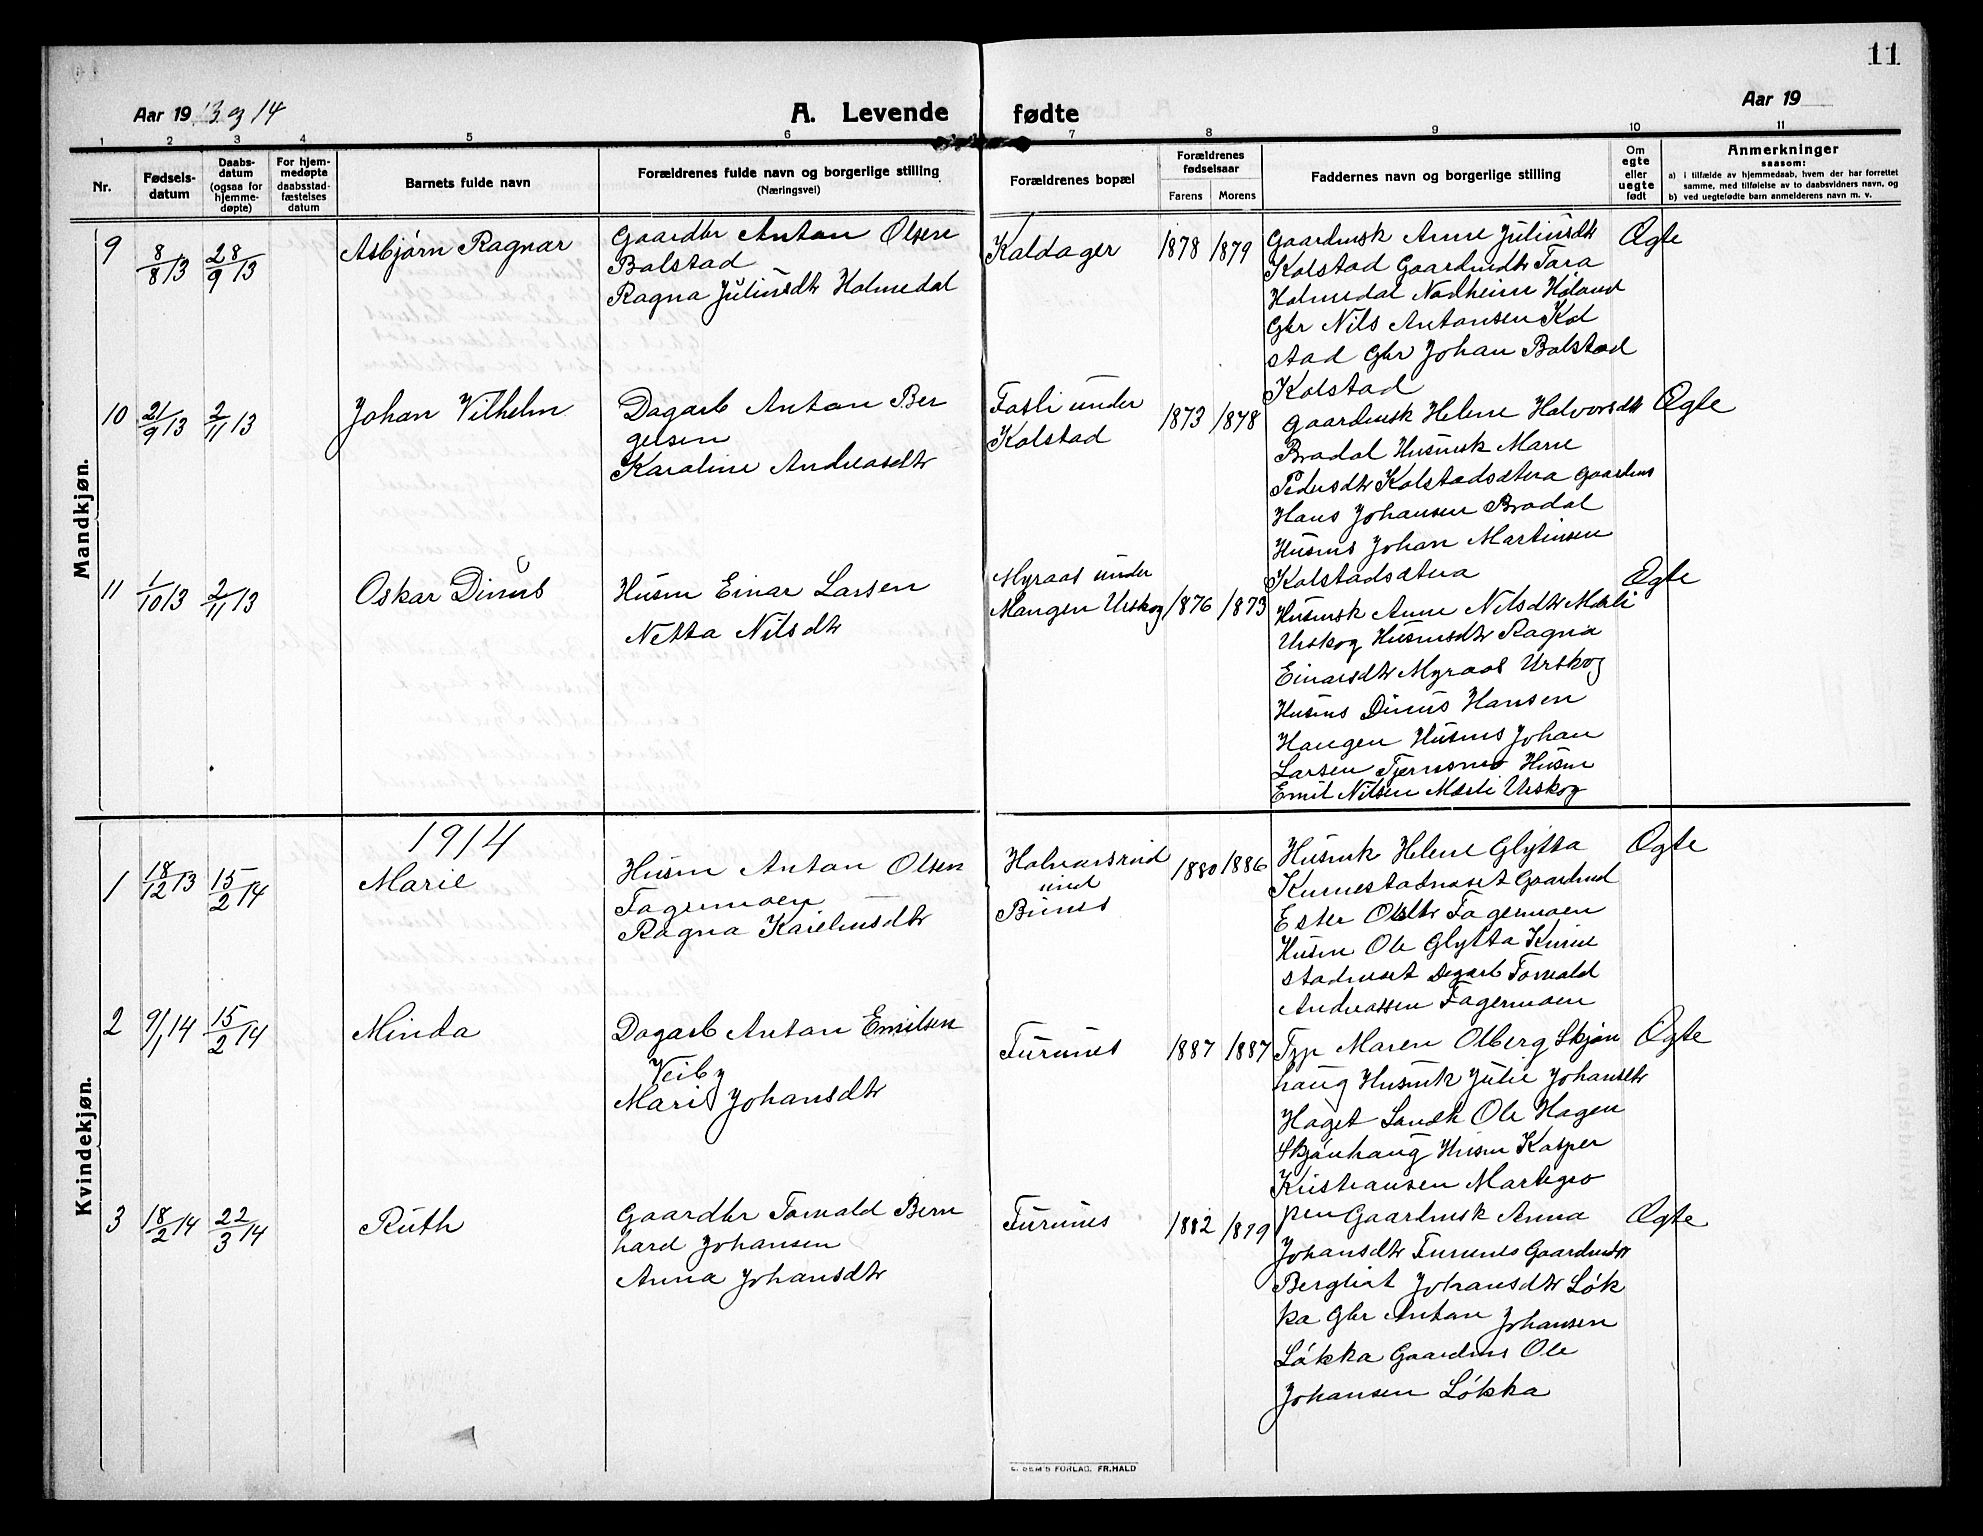 11
Aar 19 13 og 14
A. Levende fødte
Aar 19
1 2 3 4 5 6 7 8 9 10 11
Nr.
Fødsels-
datum
Daabs-
datum
(ogsaa for
hjemme-
døpte)
For hjem-
medøpte
daabsstad-
fæstelses
datum
Barnets fulde navn
Forældrenes fulde navn og borgerlige stilling
(Næringsvei)
Forældrenes bopæl
Forældrenes
fødselsaar
Farens Morens
Faddernes navn og borgerlige stilling
Om
egte
eller
uegte
født
Anmerkninger
saasom:
a) i tilfælde av hjemmedaab, hvem der har forrettet
samme, med tilføielse av to daabsvidners navn, og
b) ved uegtefødte barn anmelderens navn m. v.
Mandkjøn.
9 8/8 13 28/9 13 Asbjørn Ragnar
Gaardbr Anton Olsen
Bolstad
Ragna Juliusdtr Holmedal
Koldager 1878 1879
Gaardmsk Anne Juliusdtr
Kolstad Gaardmdtr Tora
Holmedal Nordheim Høland
Gbr Nils Antonsen Kol
stad Gbr Johan Bolstad
Kolstad
Ægte
10 21/9 13 2/11 13 Johan Vilhelm
Dagarb Anton Ber
gersen
Karoline Andreasdtr
Fosli under
Kolstad
1873 1878
Gaardmsk Helene Halvorsdtr
Bradal Husmsk Marie
Pedersdtr Kolstadsætra Gaardms
Hans Johansen Bradal
Husms Johan Martinsen
Kolstadsætra
Ægte
11 1/10 13 2/11 13 Oskar Dinus
Husm Einar Larsen
Netta Nilsdtr
Myraas under
Mangen Urskog
1876 1873
Husmsk Anne Nilsdtr Mærli
Urskog Husmsdtr Ragna
Einarsdtr Myraas Urskog
Husms Dinus Hansen
Hangen Husms Johan
Larsen Tjernsmo Husm
Emil Nilsen Mærli Urskog
Ægte
Kvindekjøn.
1914
1 18/12 13 15/2 14 Marie
Husm Anton Olsen
Fagermoen
Ragna Kareliusdtr
Halvorsrud
und
Bunes
1880 1886
Husmk Helene Glytta
Kinnestadnæset Gaardmd
Ester Olsdtr Fagermoen
Husm Ole Glytta Kinne
stadnæset Dagarb Torvald
Andreassen Fagermoen
Ægte
2 9/1 14 15/2 14 Minda
Dagarb Anton Emilsen
Veiby
Marie Johansdtr
Furunes 1887 1887
Tjp Maren Olberg Skjøn
haug Husmk Julie Johansdtr
Haget Landh Ole Hagen
Skjønhaug Husm Kasper
Kristiansen Martegro
pen
Ægte
3 18/2 14 22/3 14 Ruth
Gaardbr Torvald Bern
hard Johansen
Anna Johansdtr
Furunes 1882 1879
Gaardmsk Anna
Johansdtr Furunes Gaardmdtr
Bergliot Johansdtr Løk
ka Gbr Anton Johansen
Løkka Gaardms Ole
Johansen Løkka
Ægte
SEM'S FORLAG. FR.HALD